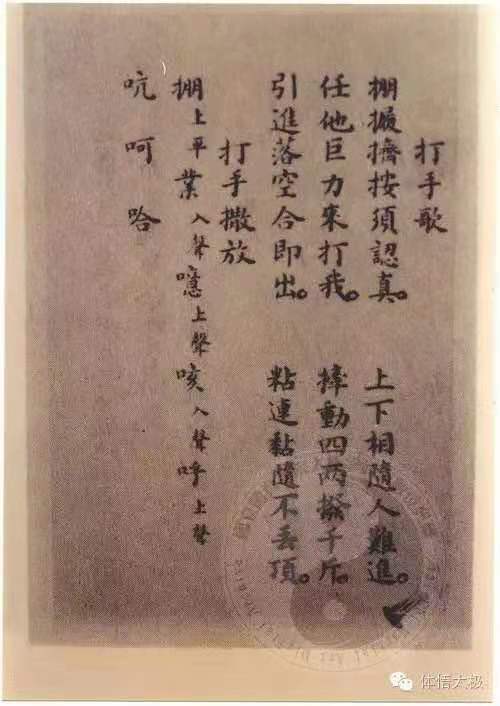 打手歌
掤攦擠按須認真。 上下相隨人難進。
任他巨力來打我。 捧動四兩撥千斤。
引進落空合即出。 粘連黏隨不丟頂。
打手撒放
掤上平業入聲噫上聲咳入聲呼上聲
吭呵哈
体悟太极